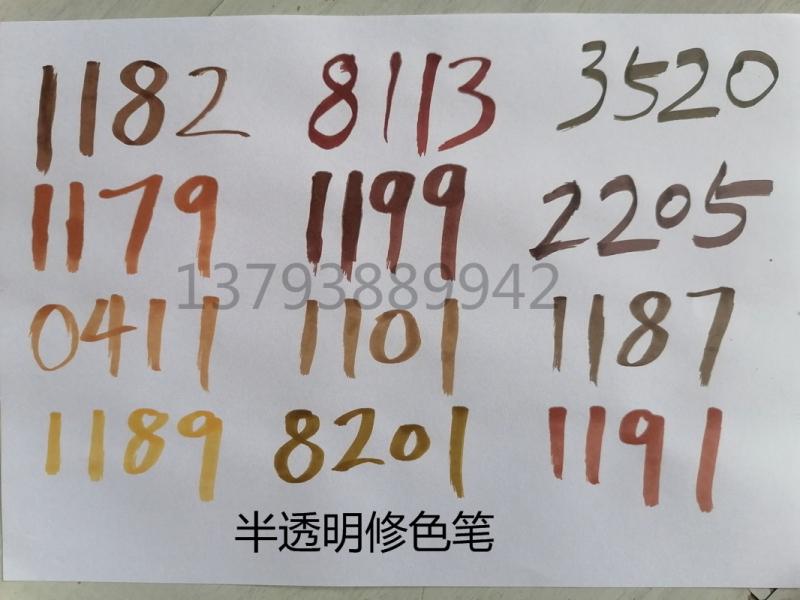 1182 8113 3520
1179 1199 2205
13793889942
0411 1101 1187
1189 8201 1191
半透明修色笔